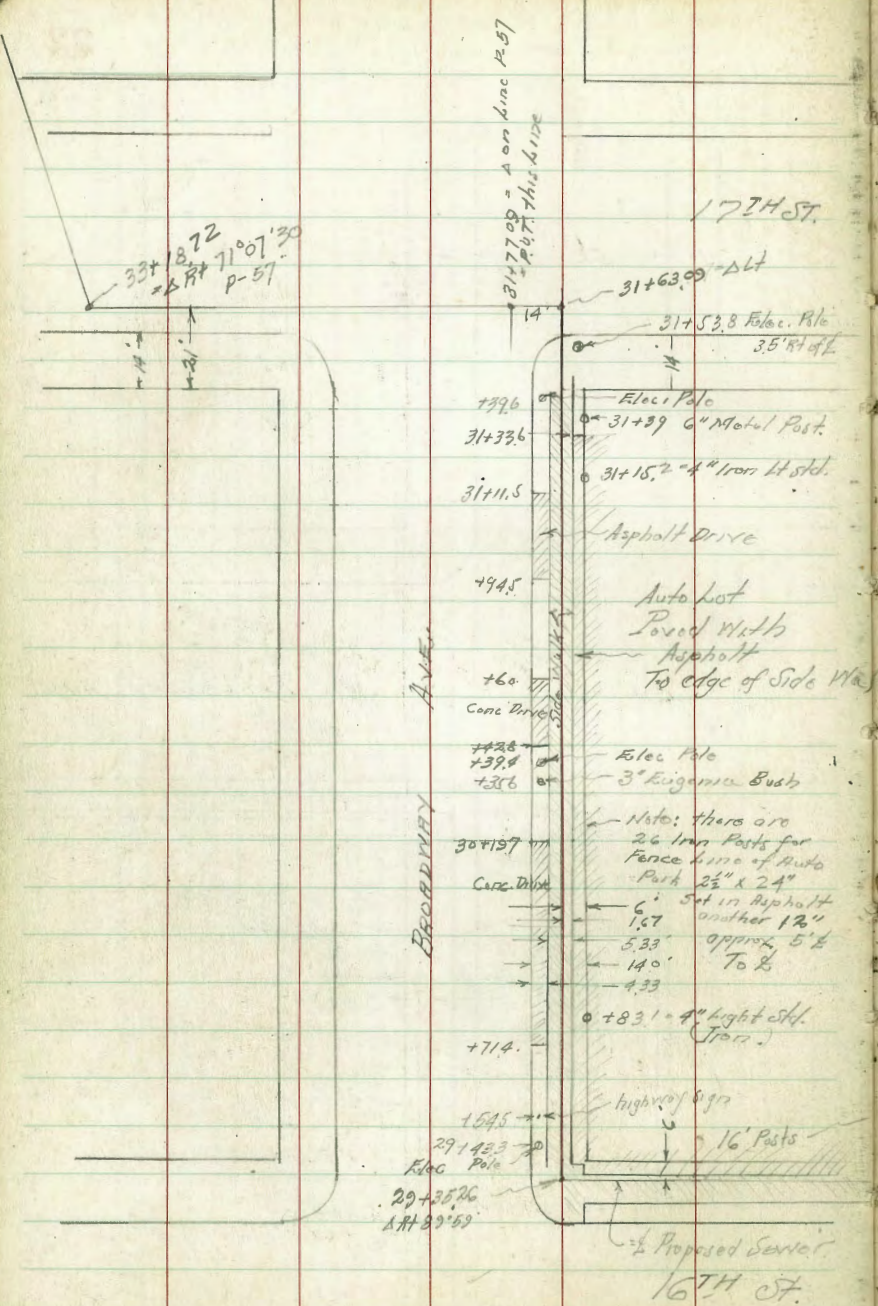 31+77.09 = Δ on Line P-57
= P.O.T. this Line
17TH ST.
33+18.72
= Δ Rt 71°07'30
P-57
14'
31+63.09 = Δ Lt
31+53.8 Elec. Pole
3.5' Rt of ℄
14'
21'
14
+39.6
Elec. Pole
31+39 6" Metal Post.
31+33.6
31+15.2 = 4" Iron Lt Std.
31+11.5
Asphalt Drive
+94.5
Auto Lot
Paved With
Asphalt
To edge of Side Wa
Side Walk
+60
Conc Drive
BROADWAY AVE.
+42.8
+39.4
Elec Pole
+35.6
3" Eugenia Bush
Note: there are
26 Iron Posts for
Fence Line of Auto
Park 2½" x 24"
Set in Asphalt
another 12"
approx 5' ℄
To ℄
30+19.7
Conc. Drive
6'
1.67
5.33'
14.0'
4.33
+83.1 = 4" Light Std.
(Iron.)
+71.4
highway sign
+54.5
6
16' Posts
29+43.3
Elec Pole
29+35.26
Δ Rt 89°59'
= ℄ Proposed Sewer.
16TH ST.